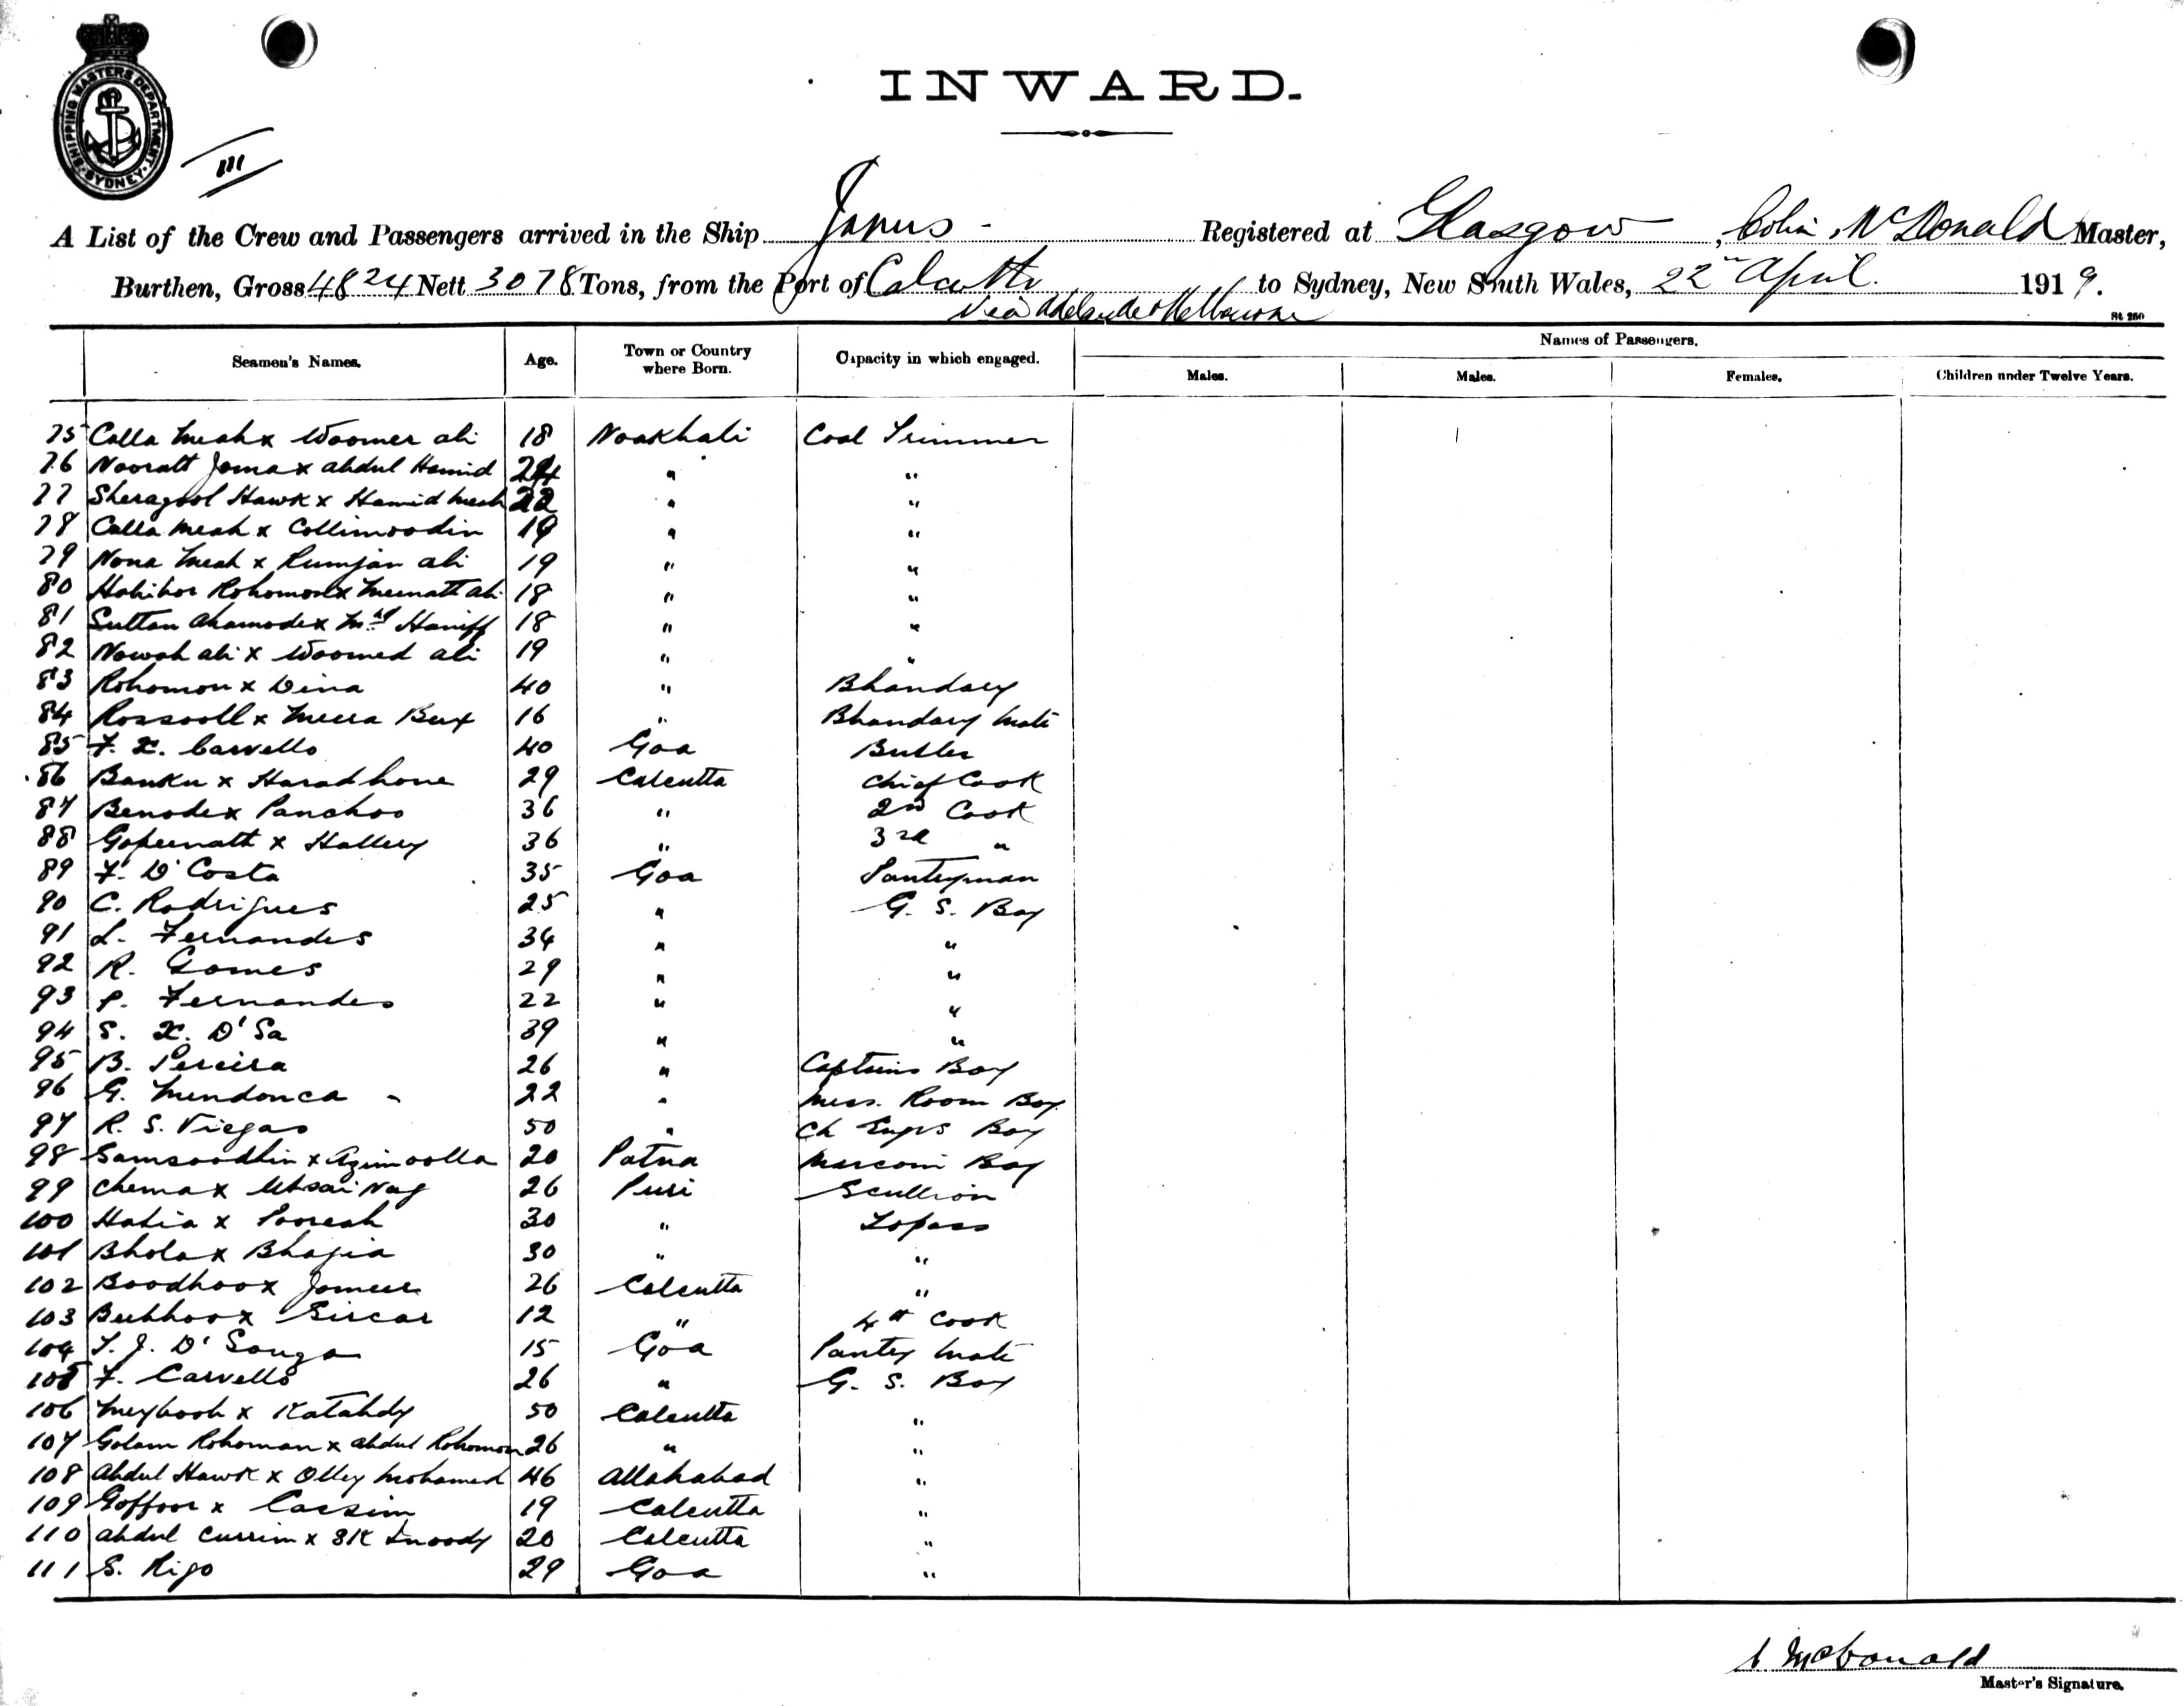 INWARD.
SHIPPING MASTERS DEPARTMENT SYDNEY
III
A List of the Crew and Passengers arrived in the Ship Janus - Registered at Glasgow, Colin McDonald Master,
Burthen, Gross 4824 Nett 3078 Tons, from the Port of Calcutta to Sydney, New South Wales, 22nd April 1919.
via Adelaide & Melbourne
St 250
Seamen's Names. Age. Town or Country where Born. Capacity in which engaged. Names of Passengers.
Males. Males. Females. Children under Twelve Years.
75 Calla Meah x Woomer ali 18 Noakhali Coal Trimmer
76 Nooratt Joma x abdul Hamid 24 " "
77 Sheragool Hawk x Hamid Meah 22 " "
78 Calla Meah x Collimoodin 19 " "
79 Nona Meah x Rumjan ali 19 " "
80 Hobibor Rohomon x ali 18 " "
81 Sultan Ahamode x Md Haniff 18 " "
82 Nowab ali x Woomed ali 19 " "
83 Rohomon x Dina 40 " Bhandary
84 Rossooll x Meera Bux 16 " Bhandary Mate
85 F. X. Carvello 40 Goa Butler
86 Banku x Haradhone 29 Calcutta Chief Cook
87 Benode x Panchoo 36 " 2nd Cook
88 Gopeenath x 36 " 3rd "
89 F. D'Costa 35 Goa Pantryman
90 C. Rodrigues 25 " G. S. Boy
91 L. Fernandes 34 " "
92 R. Gomes 29 " "
93 P. Fernandes 22 " "
94 S. X. D'Sa 39 " "
95 B. Pereira 26 " Captains Boy
96 G. Mendonca - 22 " Mess. Room Boy
97 R. S. Viegas 50 " Ch Engrs Boy
98 Samsoodhin x Azimoolla 20 Patna Marconi Boy
99 Chema x Nag 26 Puri Scullion
100 Hatia x 30 " Topass
101 Bhola x Bhagia 30 " "
102 Boodhoo x 26 Calcutta "
103 x Sircar 12 " 4th Cook
104 T. J. D'Souza 15 Goa Pantry Mate
105 F. Carvello 26 " G. S. Boy
106 x Katahdy 50 Calcutta "
107 Golam Rohoman x abdul Rohomon 26 " "
108 Abdul Hawk x Olley Mohamed 46 Allahabad "
109 Goffoor x Cassim 19 Calcutta "
110 abdul Currim x SK 20 Calcutta "
111 S. Rigo 29 Goa "
C McDonald
Master's Signature.